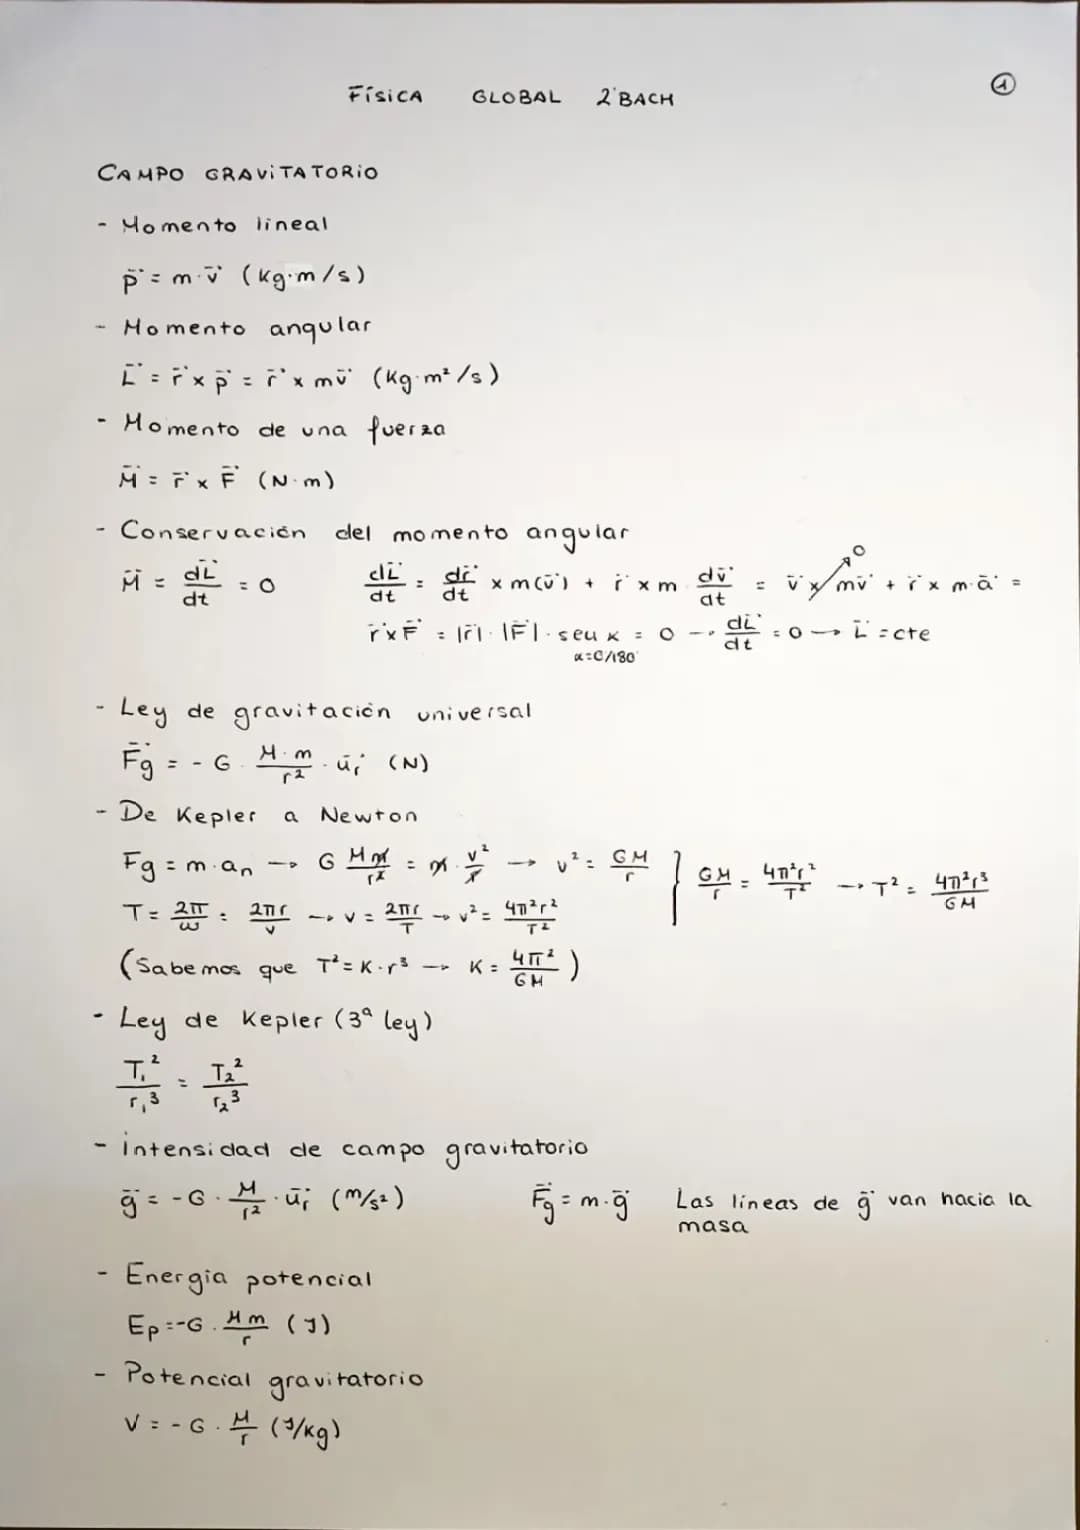 FÍSICA GLOBAL 2ºBACH
①
CAMPO GRAVITATORIO
- Momento lineal
p⃗ = m·v⃗ (kg·m/s)
- Momento angular
L⃗ = r⃗ x p⃗ = r⃗ x mv⃗ (kg·m²/s)
- Momento de una fuerza
M⃗ = r⃗ x F⃗ (N·m)
- Conservación del momento angular
M⃗ = dL⃗/dt = 0 dL⃗/dt = dr⃗/dt x m(v⃗) + r⃗ x m·dv⃗/dt = v⃗ x mv⃗ 0 + r⃗ x m·a⃗ =
r⃗ x F⃗ = |r⃗|·|F⃗|·sen α = 0 → dL⃗/dt = 0 → L⃗ = cte
α=0/180
- Ley de gravitación universal
F⃗g = - G · M·m/r² · u⃗r (N)
- De Kepler a Newton
Fg = m·an → G Mm/r² = m·v²/r → v² = GM/r } GM/r = 4π²r²/T² → T² = 4π²r³/GM
T = 2π/ω = 2πr/v → v = 2πr/T → v² = 4π²r²/T²
(Sabemos que T² = K·r³ → K = 4π²/GM)
- Ley de Kepler (3ª ley)
T₁²/r₁³ = T₂²/r₂³
- Intensidad de campo gravitatorio
g⃗ = - G · M/r² · u⃗r (m/s²) F⃗g = m·g⃗ Las líneas de g⃗ van hacia la
masa
- Energía potencial
Ep = - G · Mm/r (J)
- Potencial gravitatorio
V = - G · M/r (J/kg)